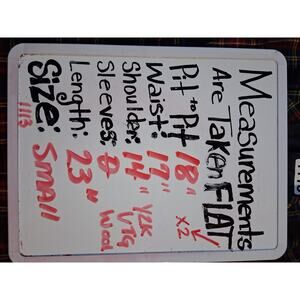 Measurements
Are Taken FLAT
Pit to Pit 18" x2
Waist: 17"
Shoulder: 14"
Sleeves: 0
Length: 23"
Y2K
VTG
Wool
Size: Small
1113